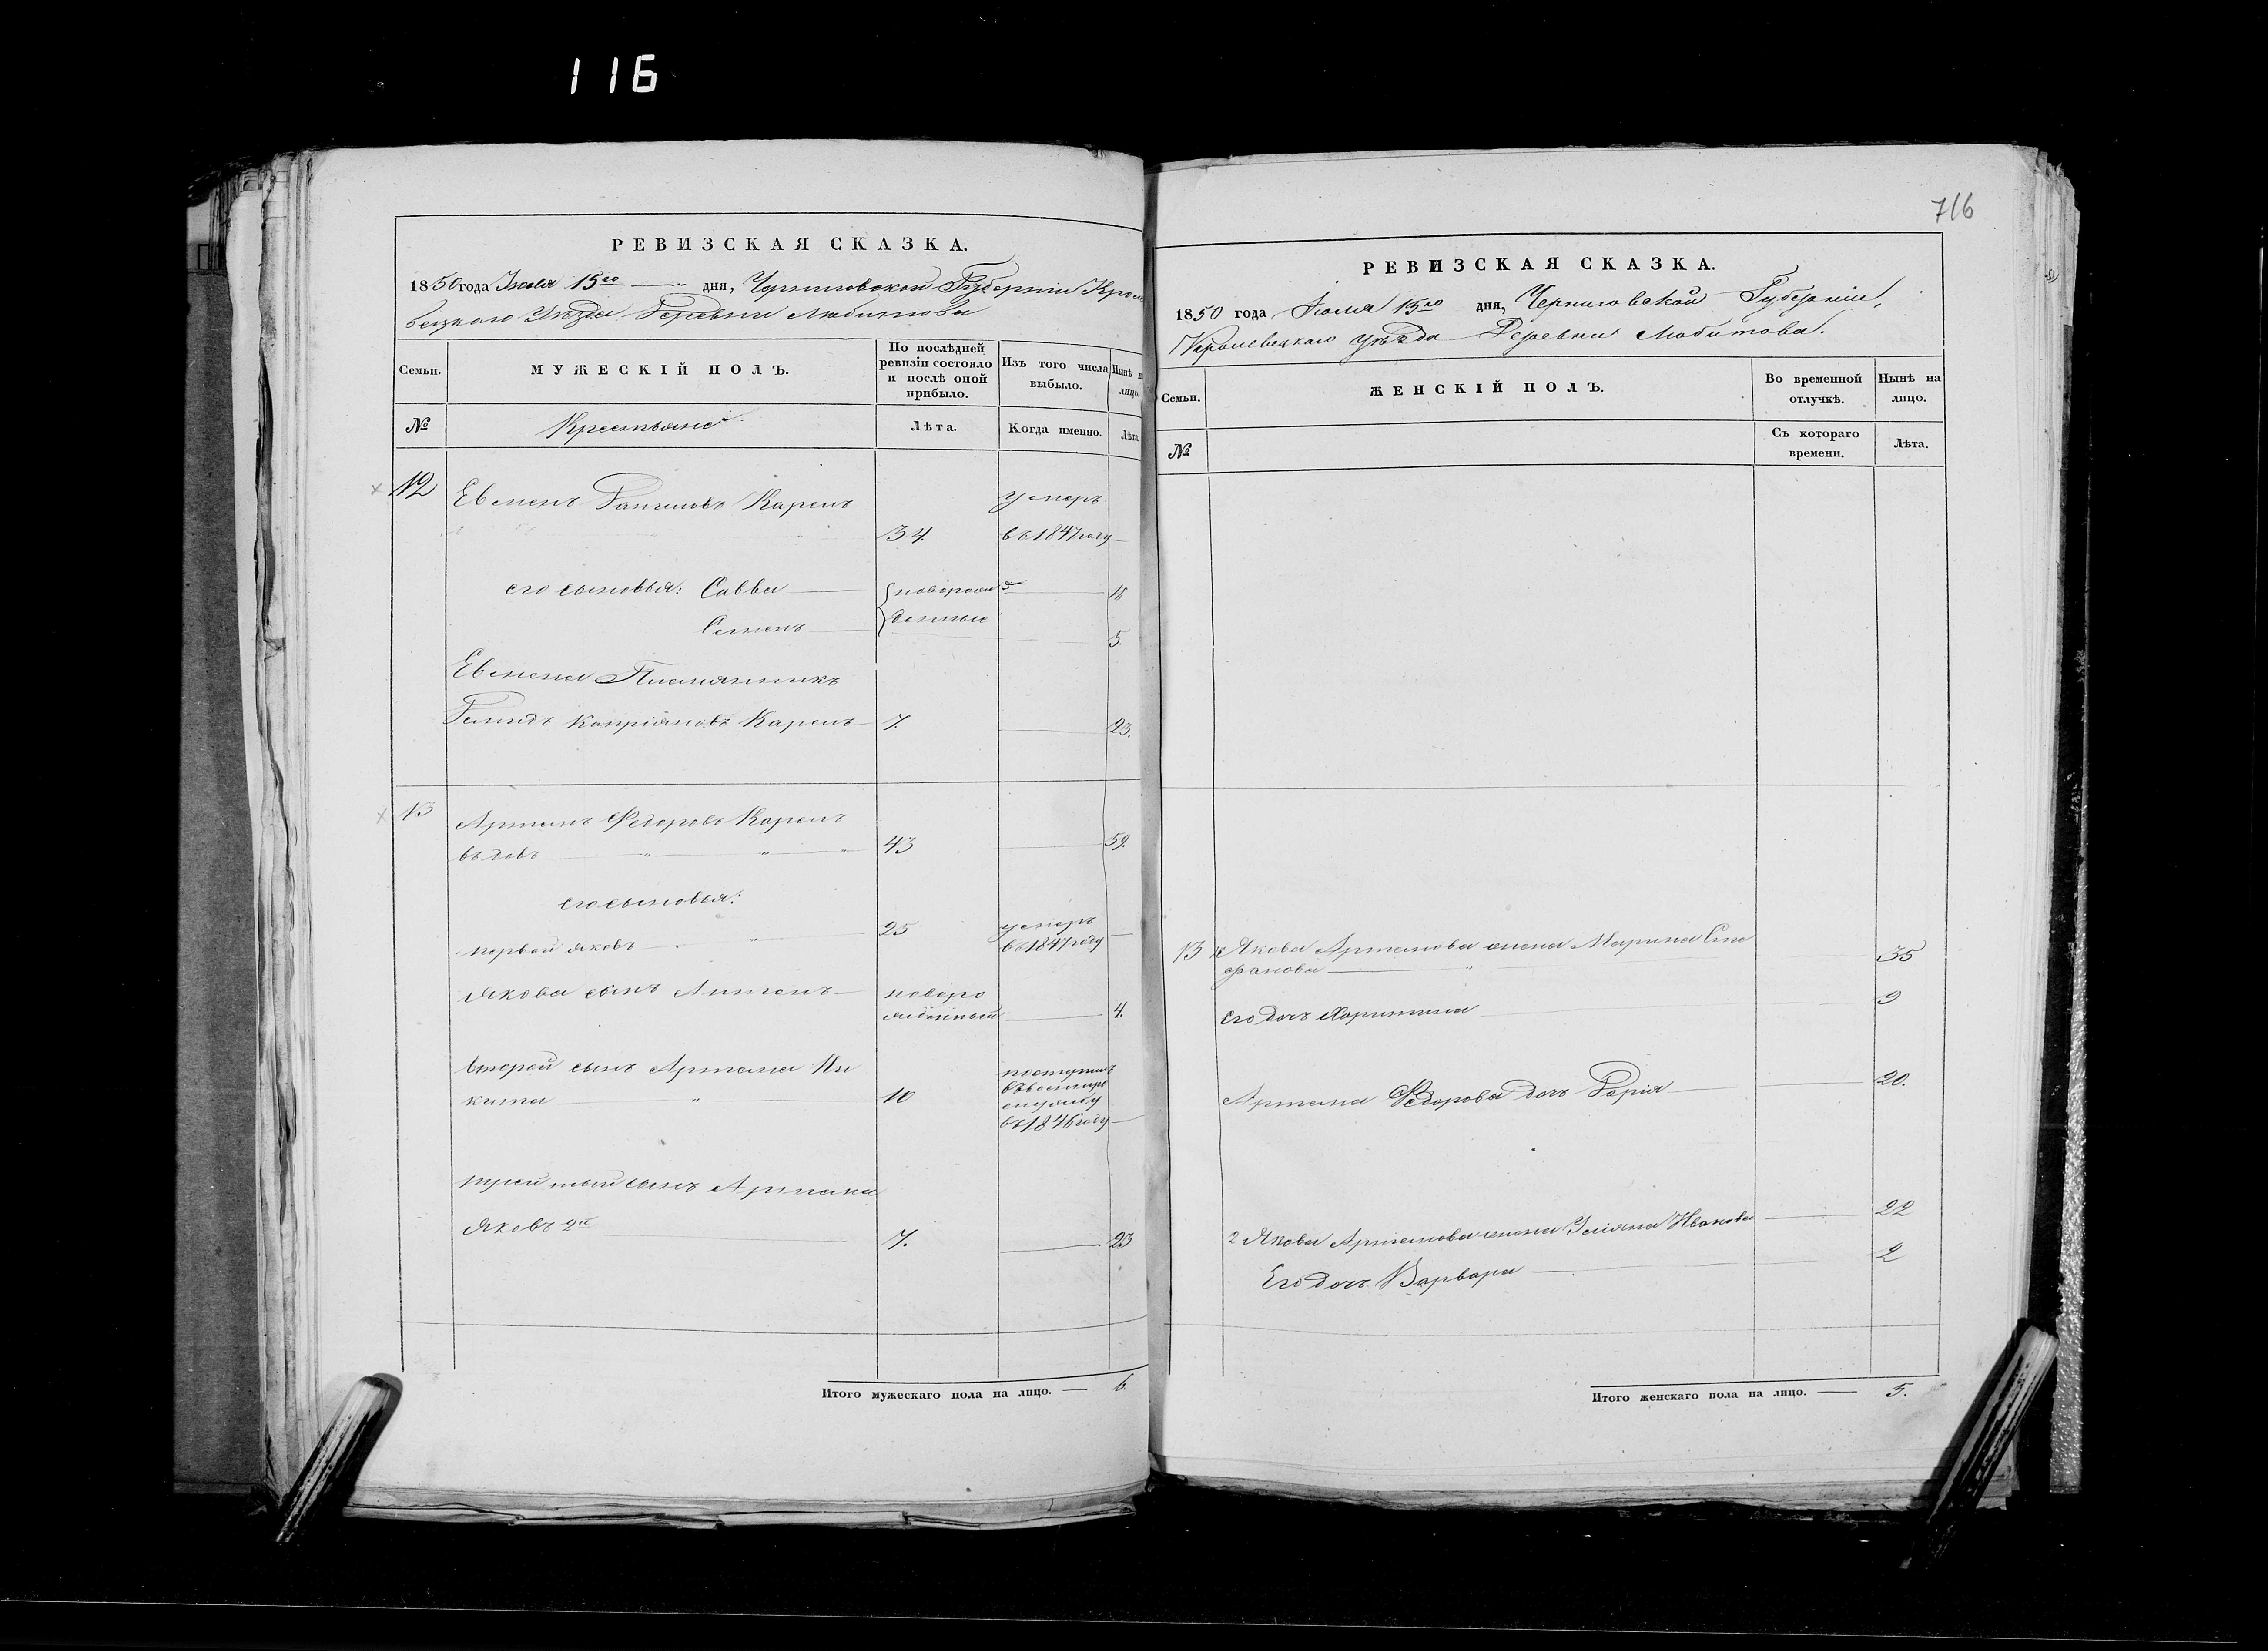 116
РЕВИЗСКАЯ СКАЗКА.
1850 года Іюля 15го дня, Черниговской Губерніи Кроле
вецкаго Уѣзда Деревни Любитова
Семьи.
МУЖЕСКІЙ ПОЛЪ.
По послѣдней ревизіи состояло и послѣ оной прибыло.
Изъ того числа выбыло.
Нынѣ н лицо.
№
Крестьяне
Лѣта.
Когда именно.
Лѣта
12
Евменъ Карепъ
умеръ
34
въ 1847 году
его сыновья: Савва
новорож
18
Семенъ
денные
5
Евмена Племянникъ
Кипріяновъ Карепъ 7. 23.
13
Артемъ Федоровъ Карепъ
вдовъ 43 59.
его сыновья:
первой Яковъ 25 умеръ
въ 1847 году
Якова сынъ Антонъ новоро
жденный 4.
второй сынъ Артема Ни
кита 10 поступилъ
въ военную
службу
въ 1846 году
третий сынъ Артема
Яковъ 2й 7. 23
Итого мужескаго пола на лицо. — 6.
716
РЕВИЗСКАЯ СКАЗКА.
1850 года Іюля 15го дня, Черниговской Губерніи,
Кролевецкаго уѣзда Деревни Любитова.
Семьи.
ЖЕНСКІЙ ПОЛЪ.
Во временной отлучкѣ.
Нынѣ на лицо.
№
Съ котораго времени.
Лѣта.
13 Якова Артемова жена Марина Сте
фанова 35
его дочь Харитина 9
Артема Федорова дочь Дарія 20.
2 Якова Артемова жена Уліяна Иванова 22
Его дочь Варвара 2
Итого женскаго пола на лицо. — 5.